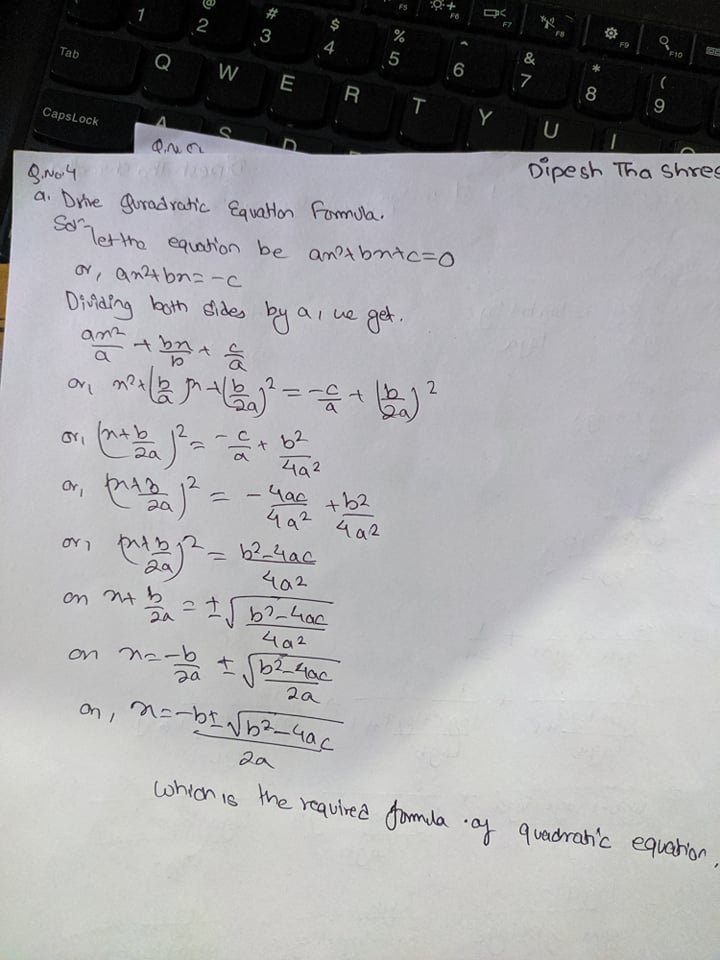 1 @ 2 # 3 $ 4 % 5 ^ 6 & 7 * 8 ( 9
F5 F6 F7 F8 F9 F10
Tab Q W E R T Y U I
CapsLock A S D
Q.No
Q.No.4 Dipesh Tha Shres
a. Drive Quradratic Equation Formula.
Solⁿ
let the equation be ax²+bx+c=0
or, ax²+bx=-c
Dividing both sides by a, we get.
ax²/a + bx/b + c/a
or, x²+(b/a)x+(b/2a)² = -c/a + (b/2a)²
or, (x+b/2a)² = -c/a + b²/4a²
or, (x+b/2a)² = -4ac/4a² + b²/4a²
or, (x+b/2a)² = b²-4ac/4a²
or x+ b/2a = ±√b²-4ac/4a²
or x=-b/2a ± √b²-4ac/2a
or, x=-b±√b²-4ac/2a
Which is the required formula of quadratic equation.